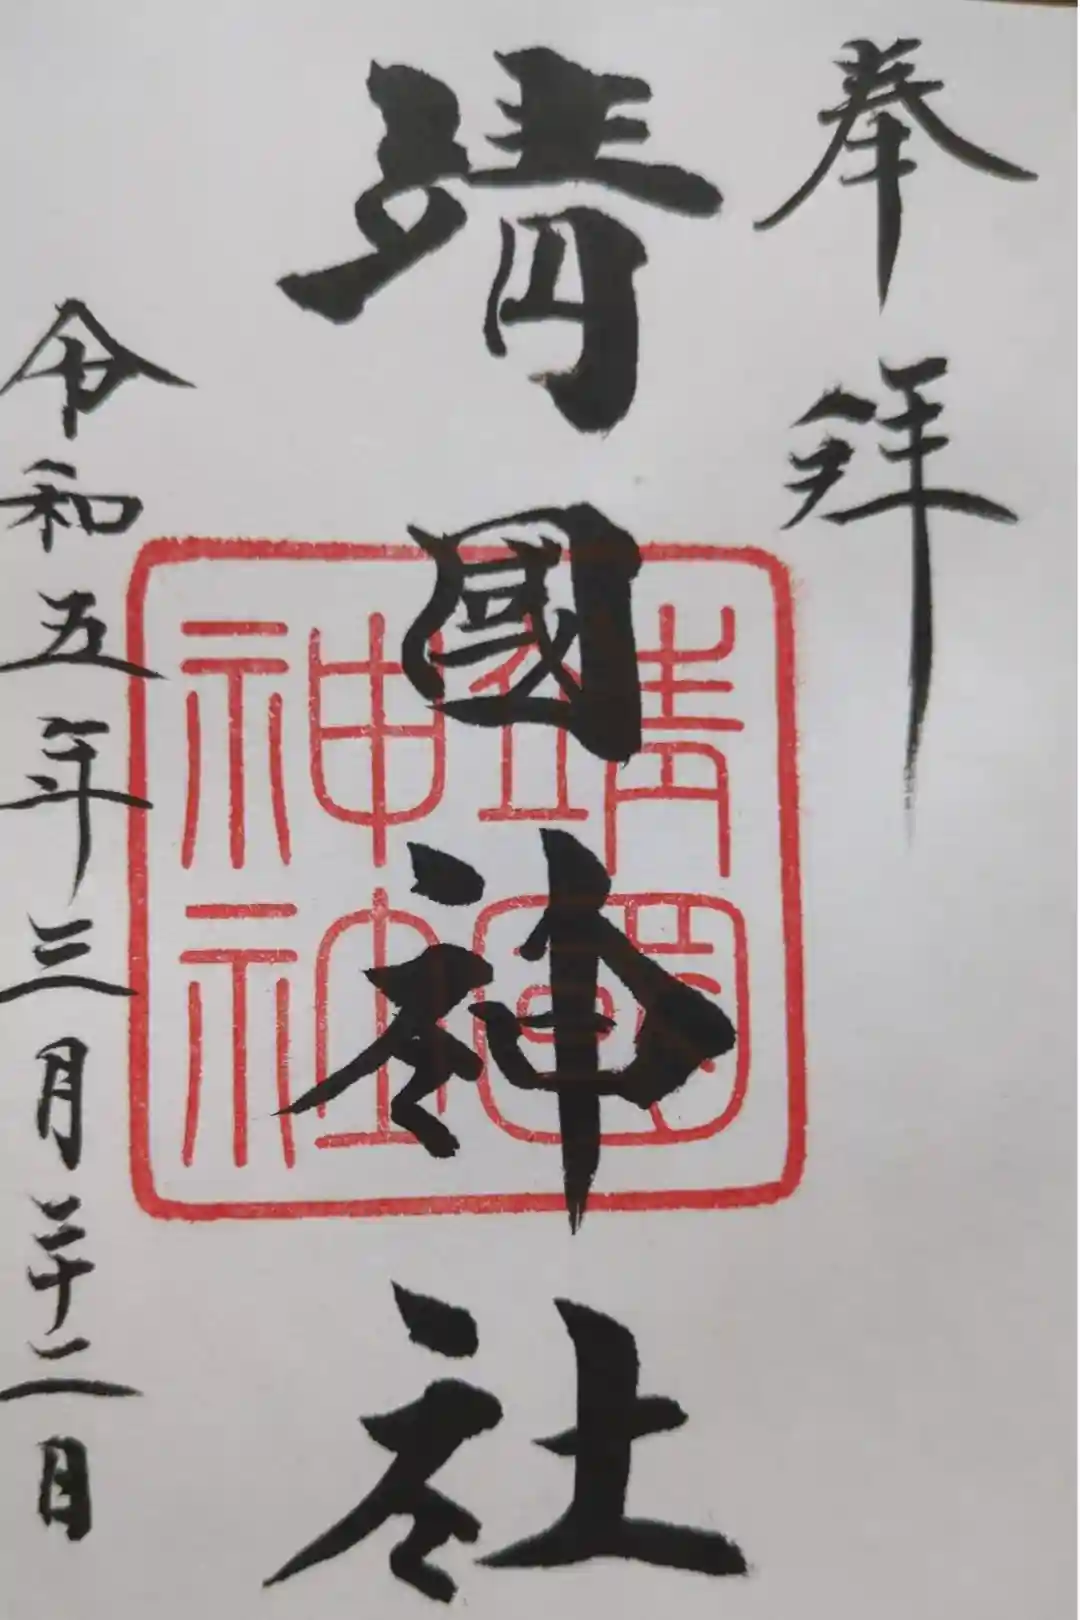 奉拝
靖國神社
靖國
神社
令和五年三月二十二日